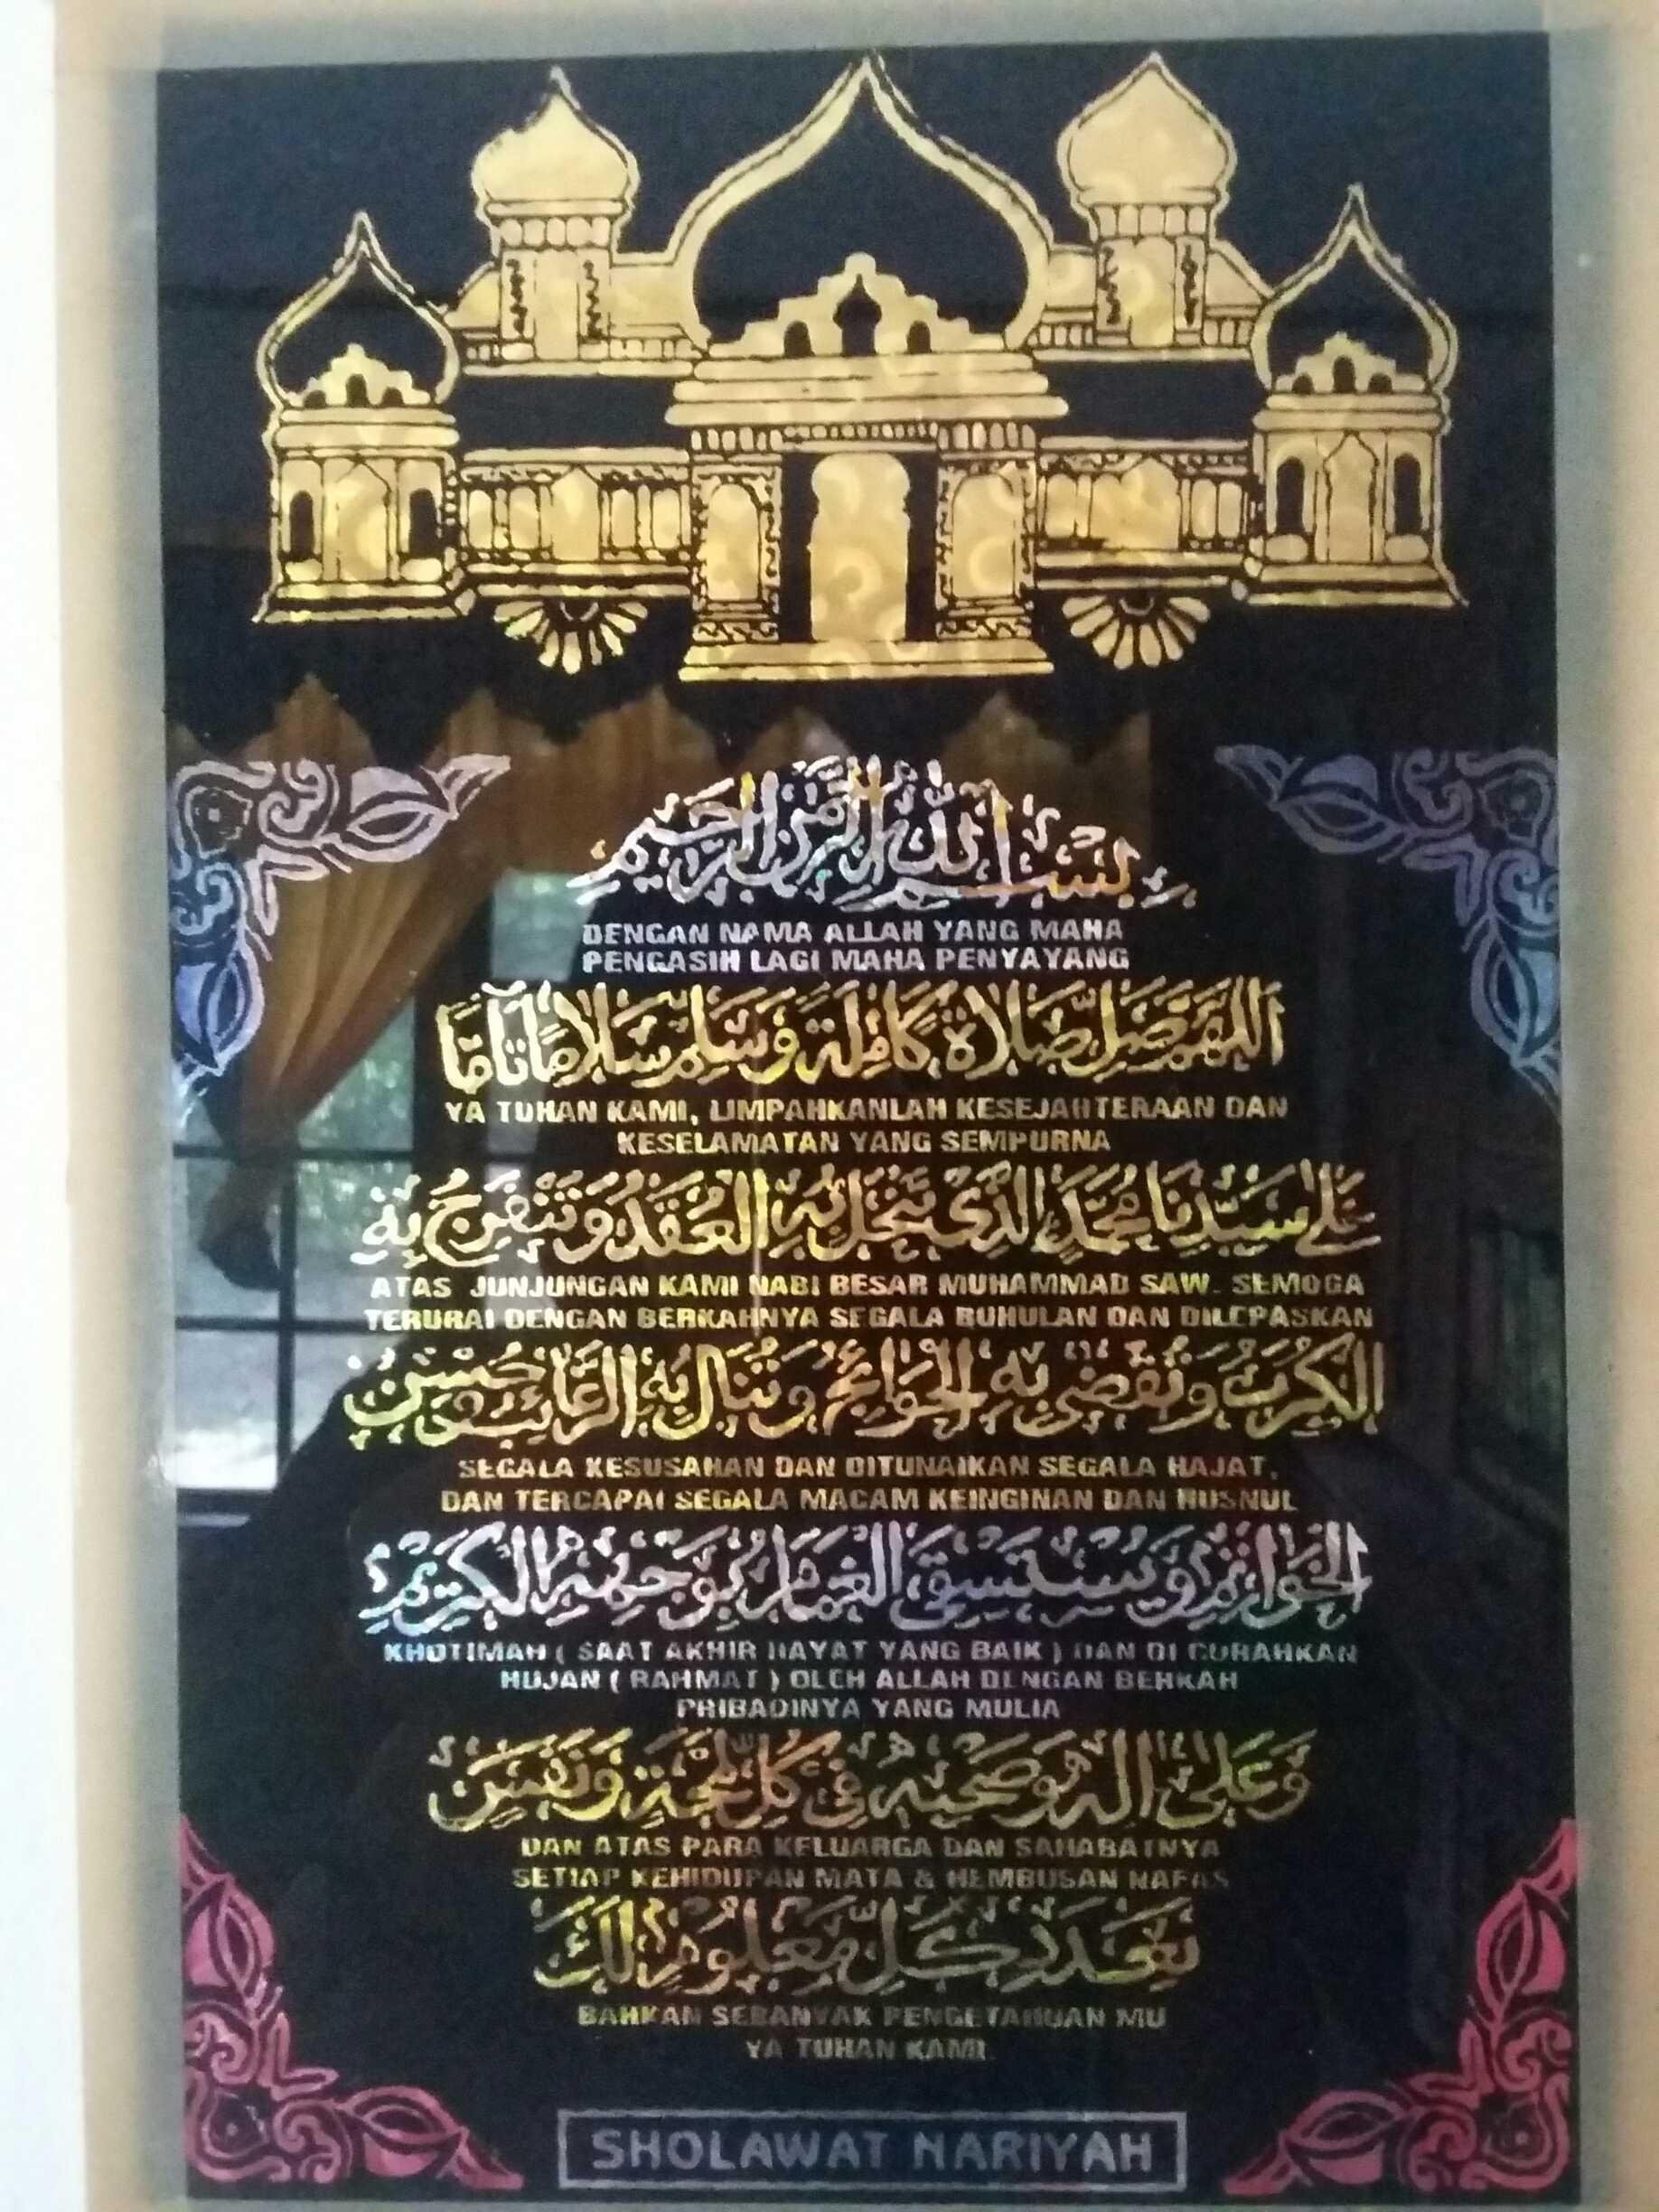 بِسْمِ اللهِ الرَّحْمٰنِ الرَّحِيْمِ
DENGAN NAMA ALLAH YANG MAHA
PENGASIH LAGI MAHA PENYAYANG
اَللّٰهُمَّ صَلِّ صَلَاةً كَامِلَةً وَسَلِّمْ سَلَامًا تَامًّا
YA TUHAN KAMI, LIMPAHKANLAH KESEJAHTERAAN DAN
KESELAMATAN YANG SEMPURNA
عَلٰى سَيِّدِنَا مُحَمَّدٍ الَّذِيْ تَنْحَلُّ بِهِ الْعُقَدُ وَتَنْفَرِجُ بِهِ
ATAS JUNJUNGAN KAMI NABI BESAR MUHAMMAD SAW. SEMOGA
TERURAI DENGAN BERKAHNYA SEGALA BUHULAN DAN DILEPASKAN
الْكُرَبُ وَتُقْضٰى بِهِ الْحَوَائِجُ وَتُنَالُ بِهِ الرَّغَائِبُ وَحُسْنُ
SEGALA KESUSAHAN DAN DITUNAIKAN SEGALA HAJAT,
DAN TERCAPAI SEGALA MACAM KEINGINAN DAN HUSNUL
الْخَوَاتِمِ وَيُسْتَسْقَى الْغَمَامُ بِوَجْهِهِ الْكَرِيْمِ
KHOTIMAH ( SAAT AKHIR HAYAT YANG BAIK ) DAN DI CURAHKAN
HUJAN ( RAHMAT ) OLEH ALLAH DENGAN BERKAH
PRIBADINYA YANG MULIA
وَعَلٰى اٰلِهِ وَصَحْبِهِ فِيْ كُلِّ لَمْحَةٍ وَنَفَسٍ
DAN ATAS PARA KELUARGA DAN SAHABATNYA
SETIAP KEHIDUPAN MATA & HEMBUSAN NAFAS
بِعَدَدِ كُلِّ مَعْلُوْمٍ لَكَ
BAHKAN SEBANYAK PENGETAHUAN MU
YA TUHAN KAMI.
SHOLAWAT NARIYAH